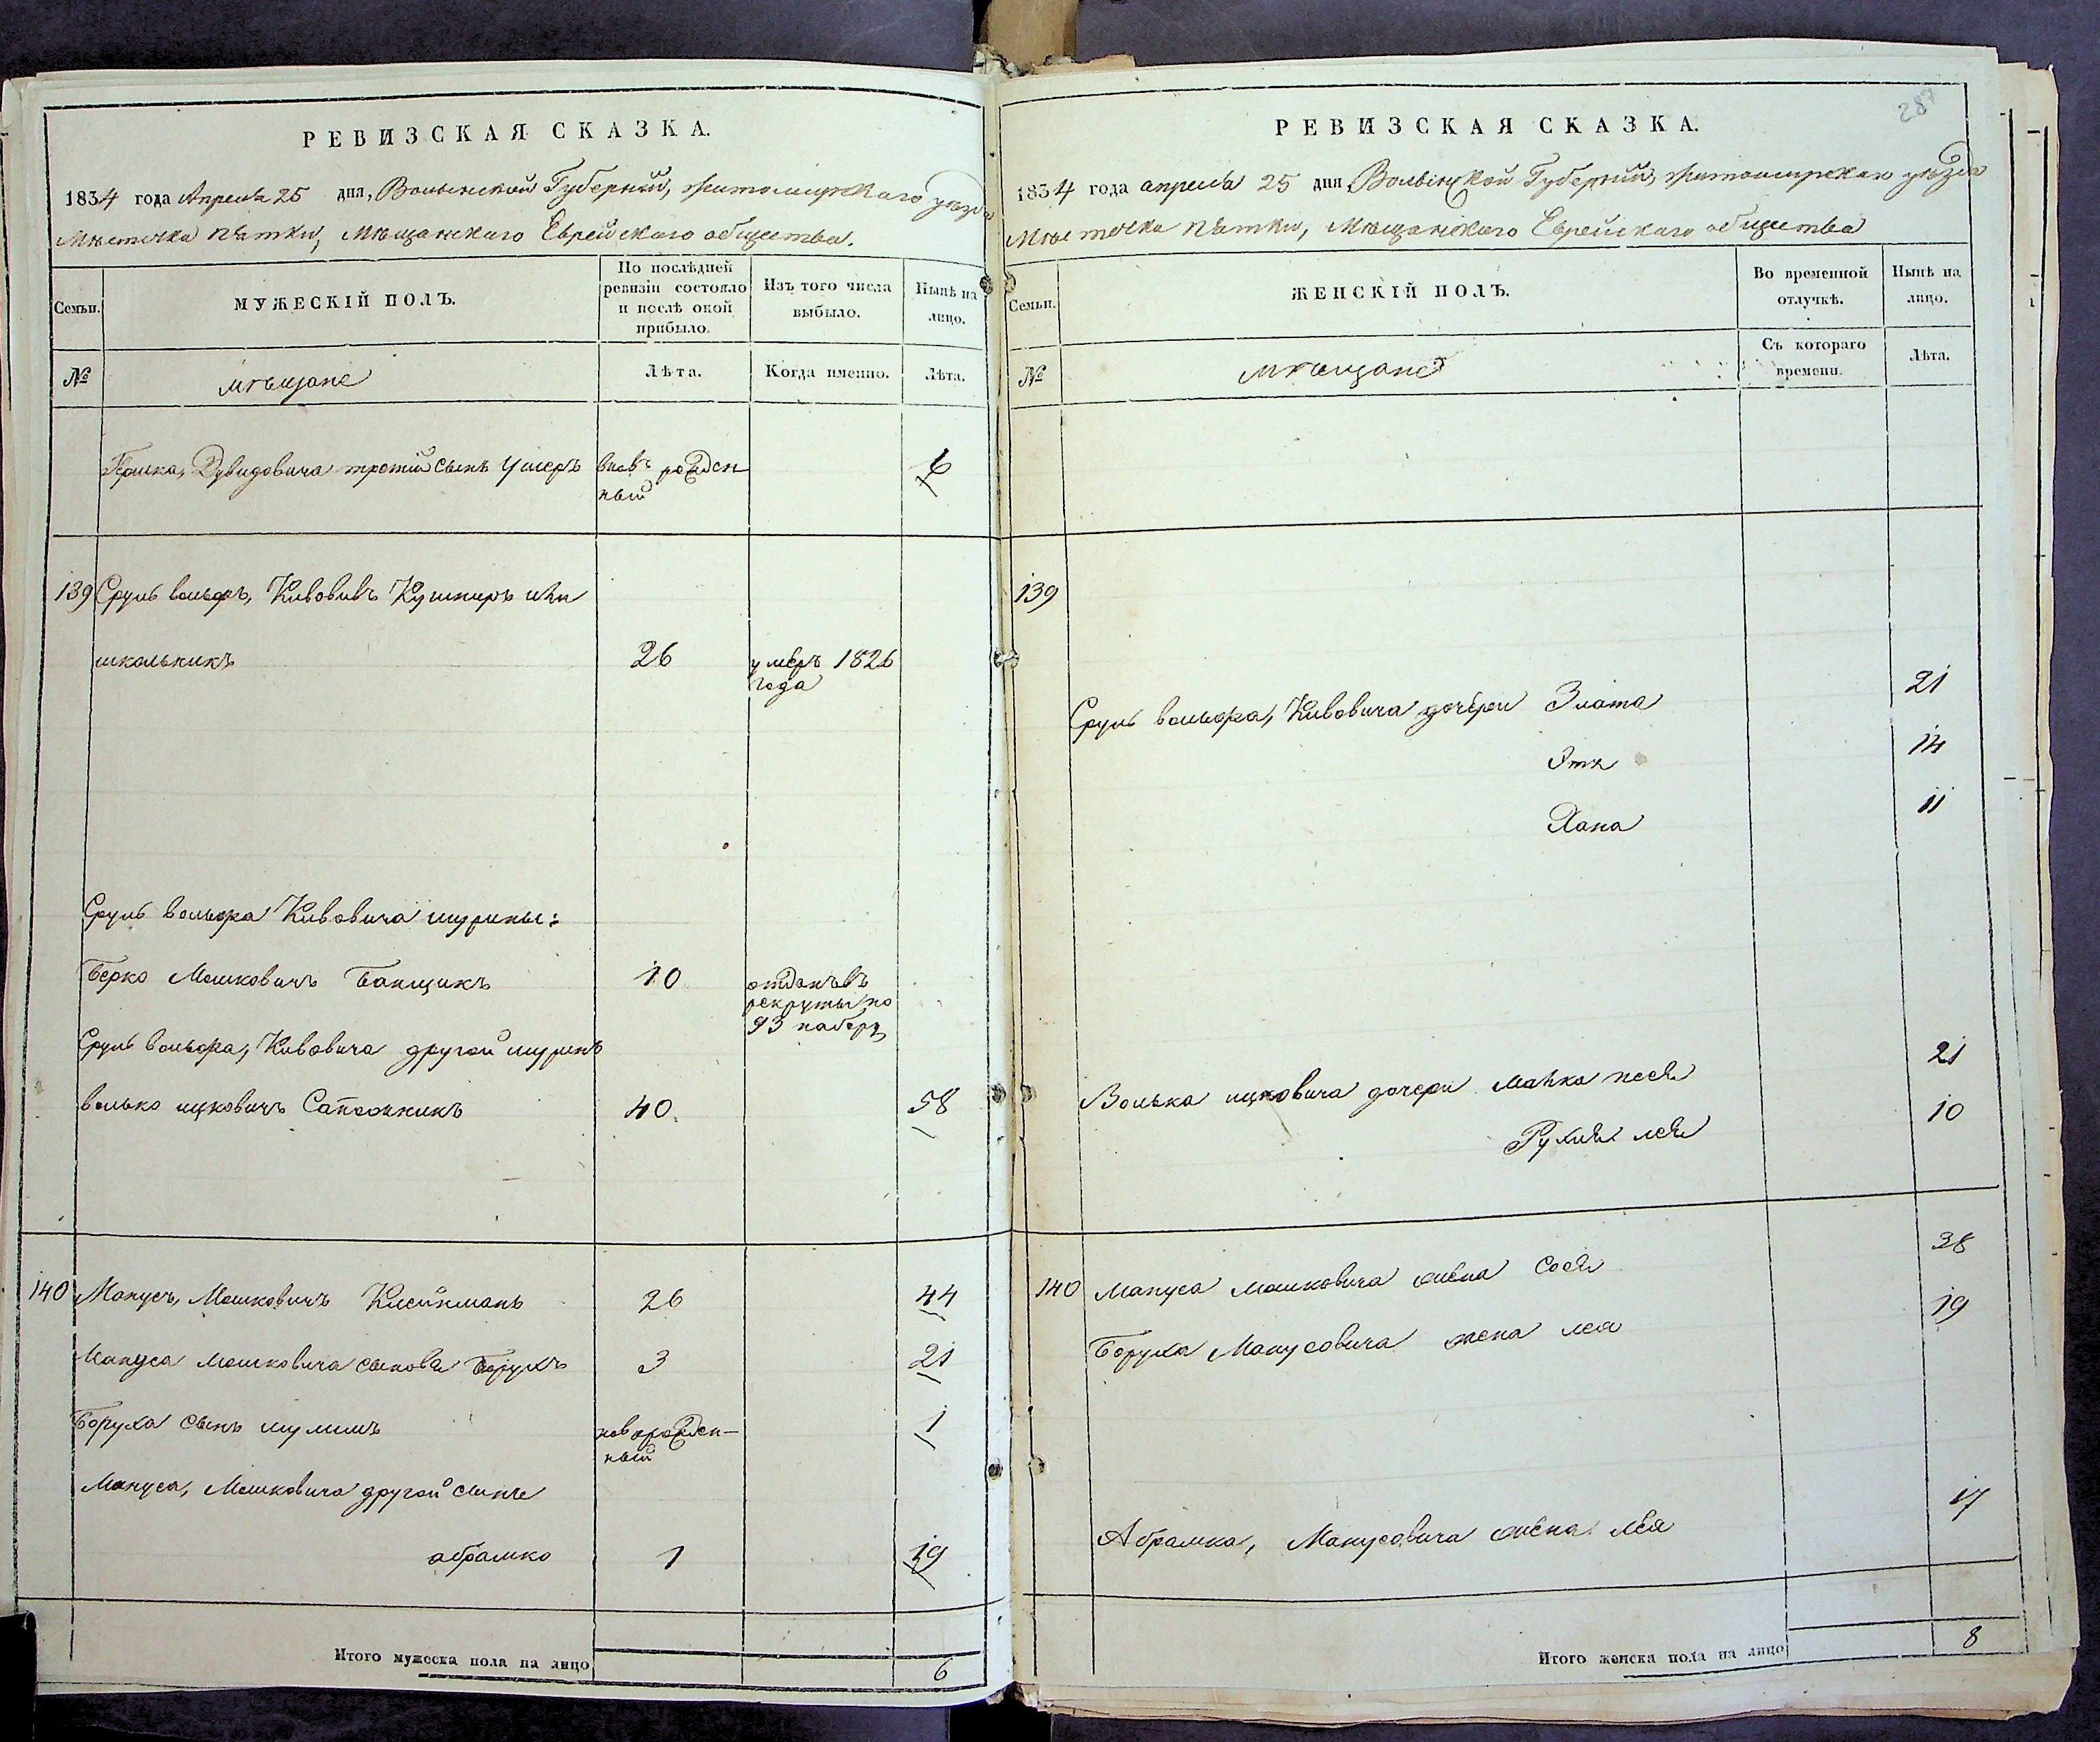 РЕВИЗСКАЯ СКАЗКА.
1834 года Апреля 25 дня, Волынской Губернии, житомирскаго уезда
Мѣстечка пятки, Мѣщанскаго Еврейского общества.
Семьи.
МУЖЕСКІЙ ПОЛЪ.
По послѣдней ревизіи состояло и послѣ оной прибыло.
Изъ того числа выбыло.
Нынѣ на лицо.
№
мѣщане
Лѣта.
Когда именно.
Лѣта.
Гершка, Дувидовича третий сынъ Ушеръ вновь рожден
ный 6
139 Сруль вольфъ, Кивовичъ Кушнеръ или
школьникъ 26 умеръ 1826
года
Сруль вольфа Кивовича шурины:
Берко Мошковичъ Банщикъ 10 отданъ въ
рекруты по
93 набору
Сруль вольфа, Кивовича другой шуринъ
волько ицковичъ Сапожникъ 40 58
140 Манусъ, Мошковичъ Клейнманъ 26 44
Мануса мошковича сыновя Борухъ 3 21
Боруха сынъ шулимъ новорожден-
ный 1
Мануса, Мошковича другой сынъ
абрамко 1 19
Итого мужеска пола на лицо 6
287
РЕВИЗСКАЯ СКАЗКА.
1834 года апреля 25 дня Волынской Губернии, житомирскаго уезда
Мѣстечка пятки, Мѣщанскаго Еврейскаго общества
Семьи.
ЖЕНСКІЙ ПОЛЪ.
Во временной отлучкѣ.
Нынѣ на лицо.
№
мѣщане
Съ котораго времени.
Лѣта.
139
Сруль вольфа, Кивовича дочери Злата 21
Этя 14
Хана 11
Волька ицковича дочери песя 21
Рухля лея 10
140 Мануса мошковича жена Сося 38
Боруха Манусовича жена лея 19
Абрамка, Манусовича жена лея 17
Итого женска пола на лицо 8